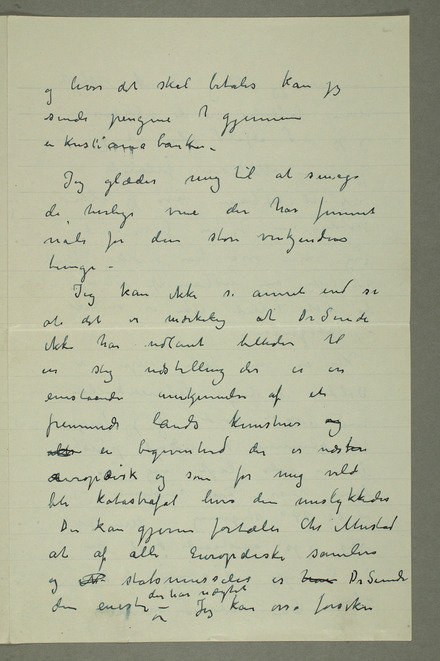 og hvis det skal betales kan jeg
sende pengene t gjennem
en kristiania banken –
Jeg glæder mig til at smage
de herlige vine der har funnet
nåde for den store vinkjenders
tunge –
Jeg kan ikke si annet end se
at det er mærkelig at Dr Sunde
ikke har utlånt billeder til
en slig udstilling der er en
enestående anerkjennelse af et
fremmede lands kunstner og
en begivenhed der er næsten
europæisk og som for mig vild
bli katastrofal hvis den mislykkedes
Du kan gjerne fortælle Chr Mustad
at af alle Europæiske samlere
og statsmuseer er Dr Sunde
den eneste – der har nægtet
og Jeg kan osså forsikre